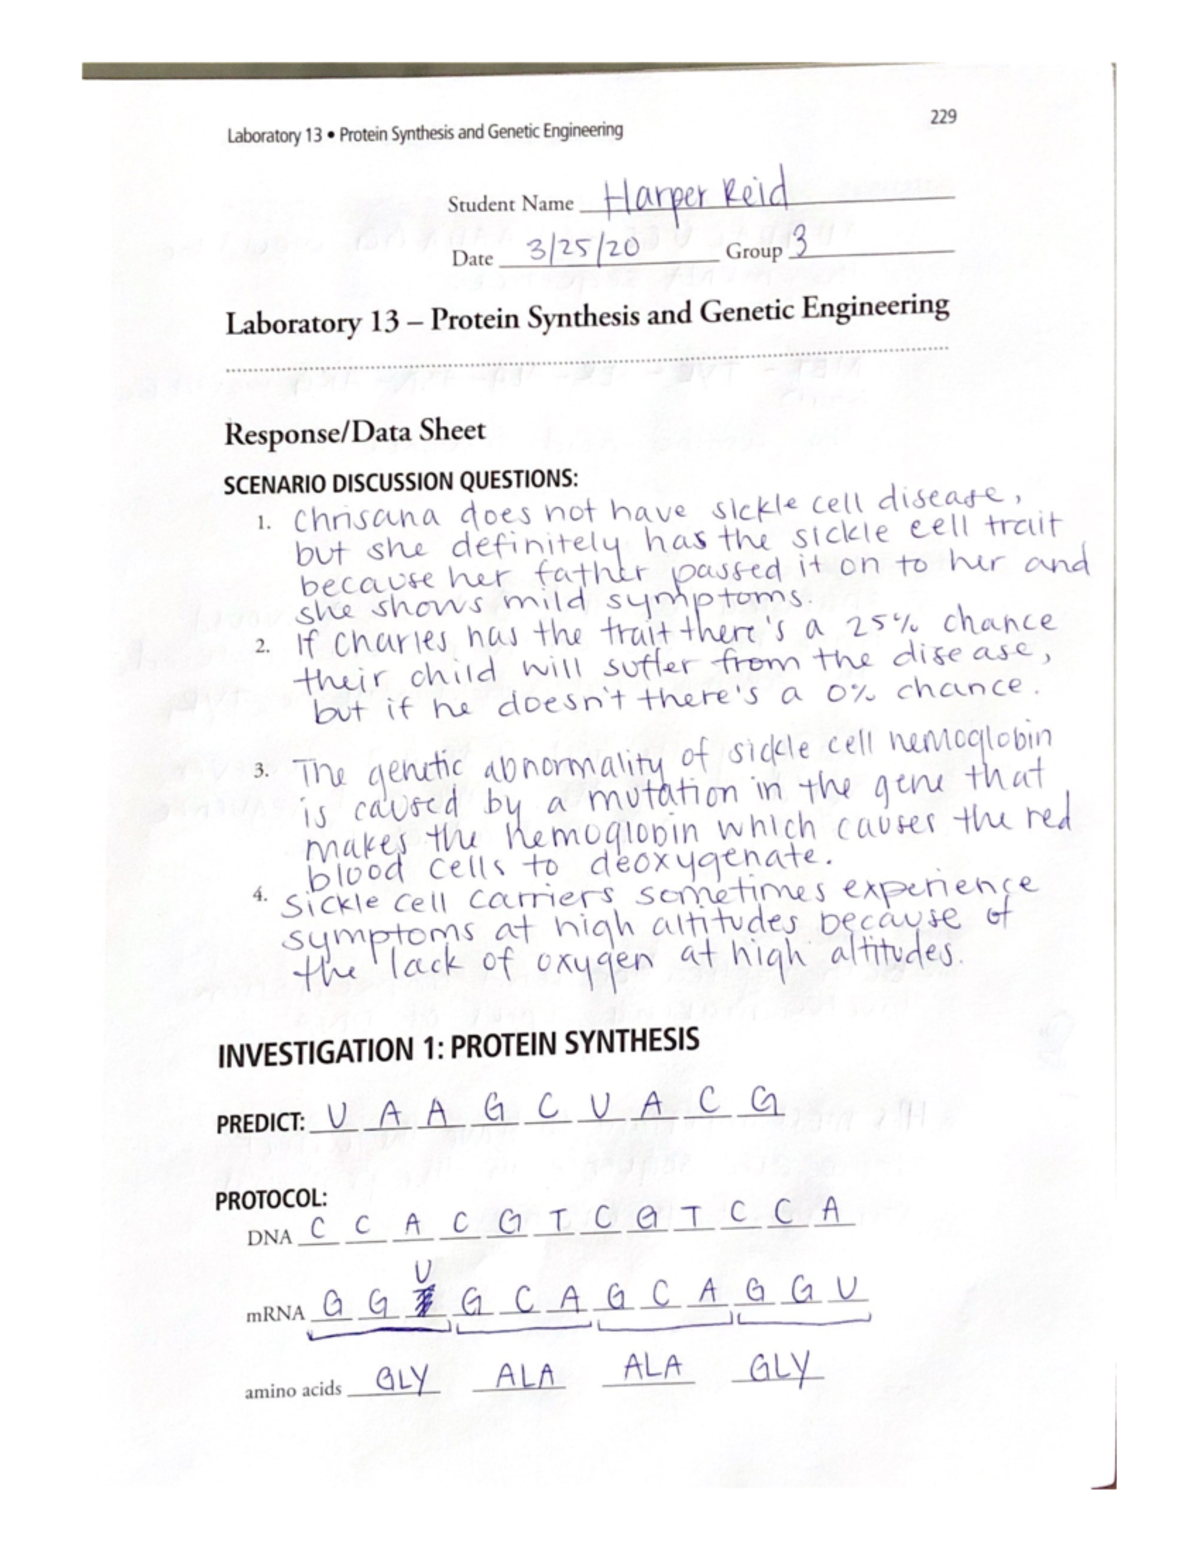 229
Laboratory 13 • Protein Synthesis and Genetic Engineering
Student Name Harper Reid
Date 3/25/20 Group 3
Laboratory 13 – Protein Synthesis and Genetic Engineering
Response/Data Sheet
SCENARIO DISCUSSION QUESTIONS:
1. Chrisana does not have sickle cell disease,
but she definitely has the sickle cell trait
because her father passed it on to her and
she shows mild symptoms.
2. If Charles has the trait there's a 25% chance
their child will suffer from the disease,
but if he doesn't there's a 0% chance.
3. The genetic abnormality of sickle cell hemoglobin
is caused by a mutation in the gene that
makes the hemoglobin which causes the red
blood cells to deoxygenate.
4. Sickle cell carriers sometimes experience
symptoms at high altitudes because of
the lack of oxygen at high altitudes.
INVESTIGATION 1: PROTEIN SYNTHESIS
PREDICT: U A A G C U A C G
PROTOCOL:
DNA C C A C G T C G T C C A
mRNA G G U G C A G C A G G U
amino acids GLY ALA ALA GLY